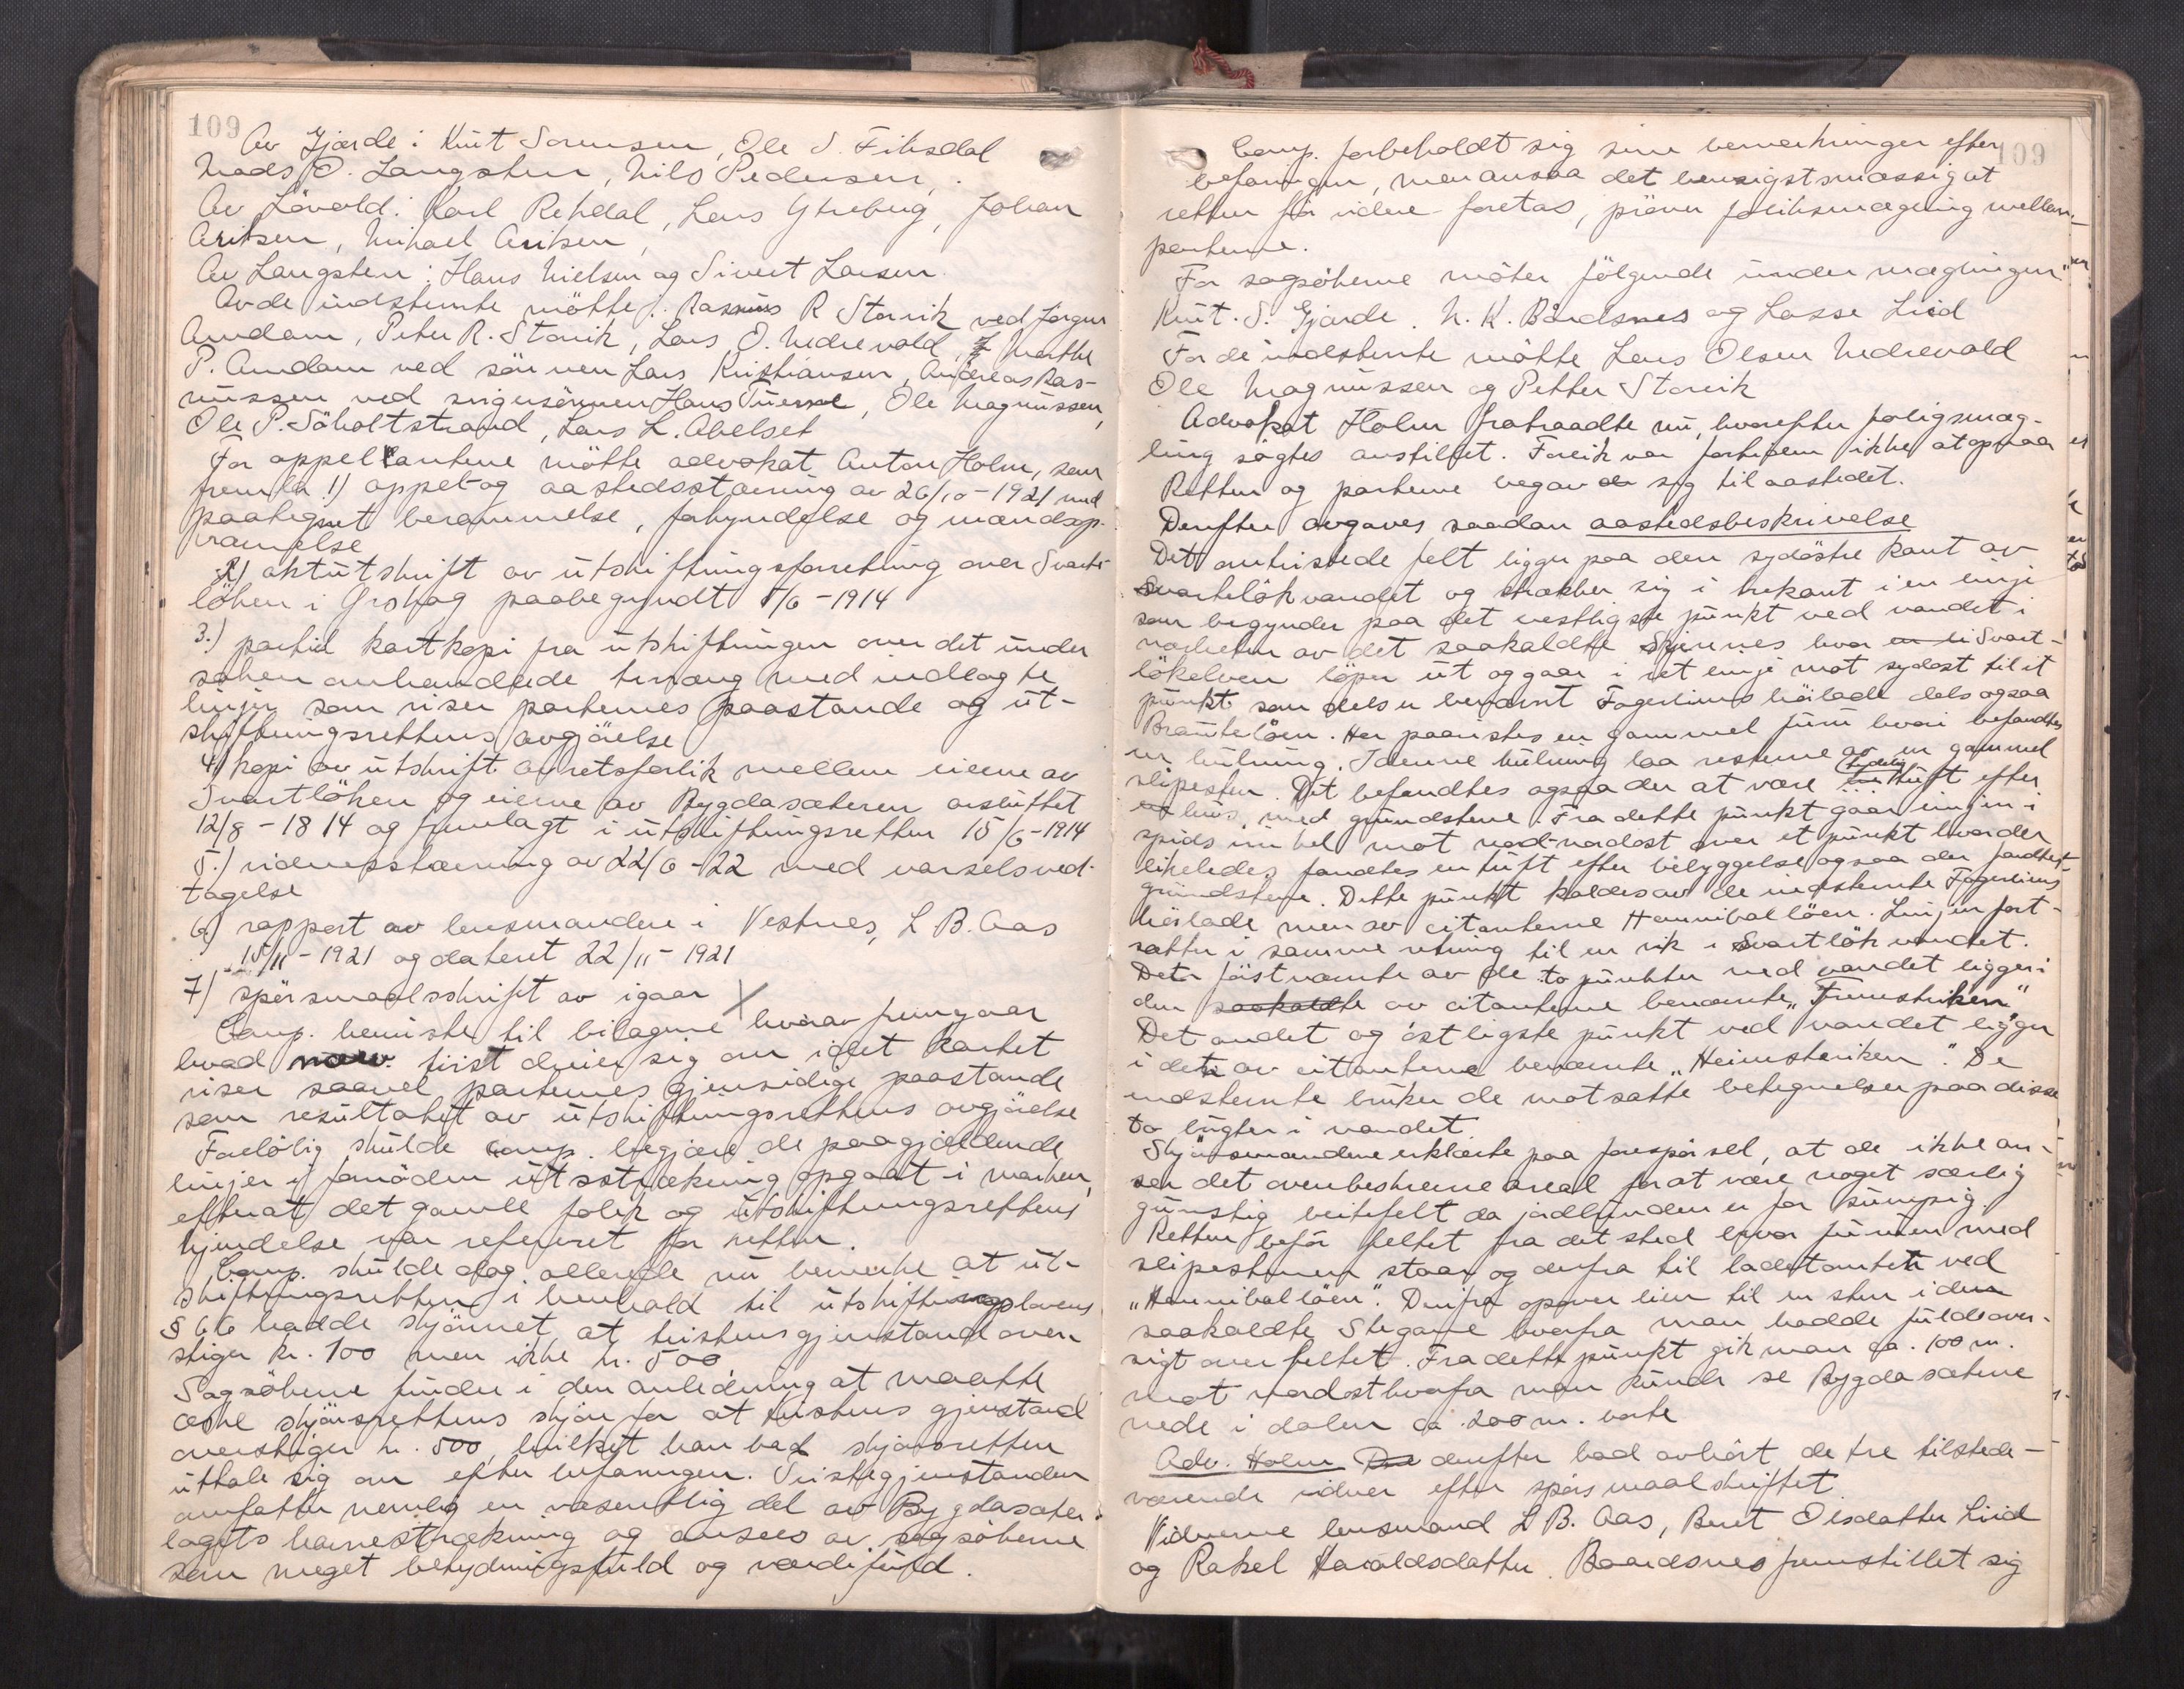 109
Av Gjærde: Knut Sørensen, Ole S. Fiksdal
Mads O. Langsten, Nils Pedersen,
Av Løvold: Karl Rekdal, Lars Ytreberg, Johan
Eriksen, Mikael Eriksen,
Av Langsten: Hans Nielsen og Sivert Larsen.
Av de indstemte møtte: Rasmus R Storvik ved Jørgen
Amdam, Peter R. Storvik, Lars O. Nedrevold, Marthe
P. Amdam ved sønnen Lars Kristiansen, Andreas Ras-
mussen ved svigersønnen Hans, Ole Magnussen,
Ole P. Søholtstrand, Lars L. Abelset
For appellantene møtte advokat Anton Holm, som
fremla 1) appel- og aastedsstævning av 26/10-1921 med
paategnet berammelse, forkyndelse og mændsop-
nævnelse
2) aktutskrift av utskiftningsforretning over Svart-
løken i Grohag paabegyndt 5/6-1914
3.) partiel kartkopi fra utskiftningen over det under
saken omhandlede terræng med indlagte
linjer som viser parternes paastande og ut-
skiftningsrettens avgjørelse
4) kopi av utskrift av retsforlik mellem eierne av
Svartløken og eierne av Bygdasæteren avsluttet
12/8-1814 og fremlagt i utskiftningsretten 15/6-1914
5.) vidnesstævning av 22/6-22 med varselsved-
tagelse
6) rapport av lensmanden i Vestnes, L B. Aas
15/11-1921 og datert 22/11-1921
7) spørsmaalsskrift av igaar
Comp. henviste til bilagene hvorav fremgaar
hvad tvist dreier sig om idet kartet
viser saavel parternes gjensidige paastande
som resultatet av utskiftningsrettens avgjørelse
Foreløbig skulde comp. begjære de paagjældende
linjer i fornøden utstrækning opgaat i marken,
efterat det gamle forlik og utskiftningsrettens
kjendelse var referert for retten.
Comp. skulde dog allerede nu bemerke at ut-
skiftningsretten i henhold til utskiftningslovens
§ 66 hadde skjønnet at tvistens gjenstand over-
stiger kr. 100 men ikke kr. 500
Sagsøkerne finder i den anledning at maatte
æske skjønsrettens skjøn for at tvistens gjenstand
overstiger kr. 500, hvilket han bad skjønsretten
uttale sig om efter befaringen. Tvistegjenstanden
omfatter nemlig en væsentlig del av Bygdasæter-
lagets havnestrækning og ansees av sagsøkerne
som meget betydningsfuld og værdifuld.
109
Comp. forbeholdt sig sine bemerkninger efter
befaringen, men ansaa det hensigtsmæssig at
retten før videre foretas, prøver forliksmægling mellem
parterne.
For sagsøkerne møter følgende under mæglingen
Knut. S. Gjærde. N. K. Baardsnes og Lasse Liid
For de indstemte møtte Lars Olsen Nedrevold
Ole Magnussen og Petter Storvik
Advokat Holm fratraadte nu, hvorefter forligsmæg-
ling søgtes anstillet. Forlik var forhaanden ikke at opnaa
Retten og parterne begav sig til aastedet.
Derefter avgaves saadan aastedsbeskrivelse
Det omtvistede felt ligger paa den sydøstre kant av
Svartløkvandet og strækker sig i trekant i en linje
som begynder paa det vestligste punkt ved vandet i
nærheten av det saakaldte Skjernes hvor Svart-
løkelven løper ut og gaar i ret linje mot sydøst til et
punkt som dels er benævnt Fagerlims høilade dels ogsaa
Brauteløen. Her paavistes en gammel furu hvori befandtes
en hulning. I denne hulning laa resterne av en gammel
slipesten. Det befandtes ogsaa der at være tydelig tuft efter
et hus med grundstene. Fra dette punkt gaar linjen i
spids vinkel mot nord-nordost over et punkt hvor der
likeledes fandtes en tuft efter bebyggelse ogsaa der jordfæst
grundstene. Dette punkt kaldes av de indstemte Fagerlims
høilade men av citanterne Hanniballøen. Linjen fort-
sætter i samme retning til en vik i Svartløkvandet.
Det førstnævnte av de to punkter ved vandet ligger i
den saakaldte av citanterne benævnte "Fremsteviken"
Det andet og østligste punkt ved vandet ligger
i det av citanterne benævnte "Heimsteviken". De
indstemte bruker de motsatte betegnelser paa disse
to bugter i vandet
Skjønsmændene erklærte paa forespørsel, at de ikke an-
ser det ovenbeskrevne areal for at være noget særlig
gunstig beitefelt da jordbunden er for sumpig.
Retten befór feltet fra det sted hvor furuen med
slipestenen staar og derfra til ladetomten ved
"Hanniballøen". Derifra opover lien til en sten i den
saakaldte Stegane hvorfra man hadde fuld over-
sigt over feltet. Fra dette punkt gik man ca. 100 m.
mot nordost hvorfra man kunde se Bygdasætrene
nede i dalen ca 200 m. borte
Adv. Holm derefter bad avhørt de tre tilstede-
værende vidner efter spørsmaalsskriftet.
Vidnerne lensmand L B. Aas, Beret Olsdatter Liid
og Rakel Haraldsdatter Baardsnes fremstillet sig